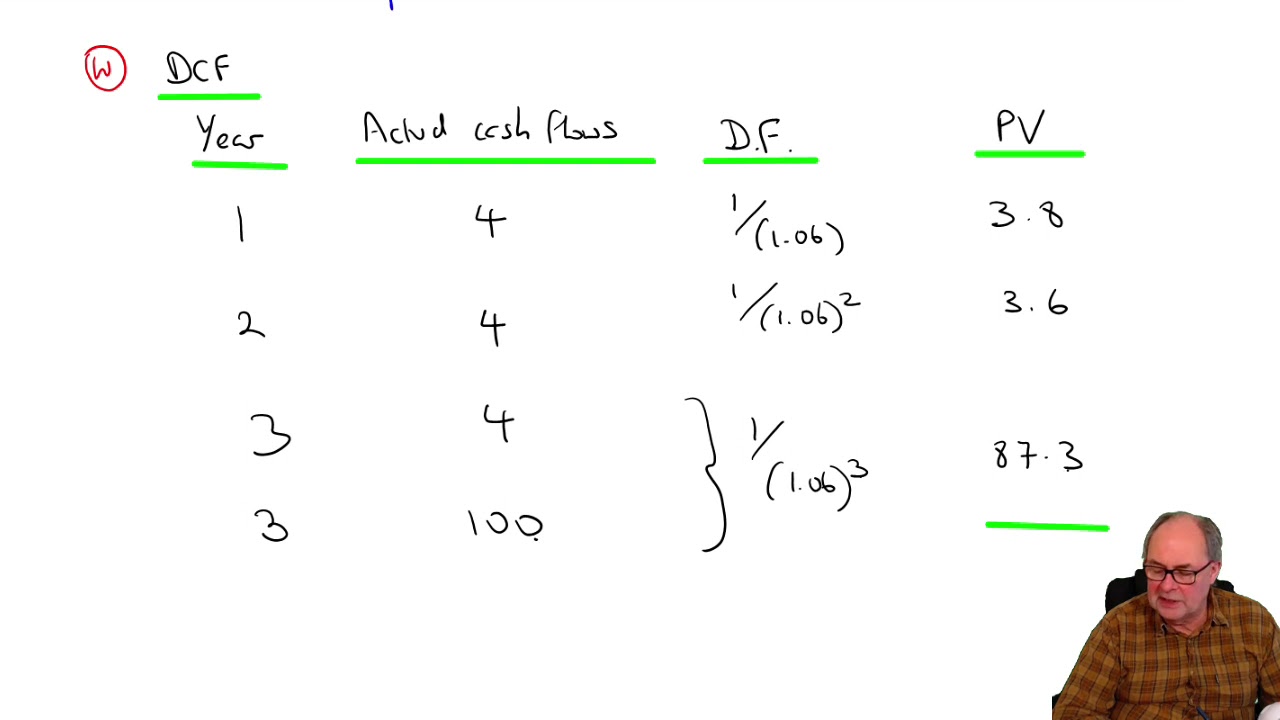 W DCF
Year Actual cash flows D.F. PV
1 4 1/(1.06) 3.8
2 4 1/(1.06)² 3.6
3 4
1/(1.06)³ 87.3
3 100